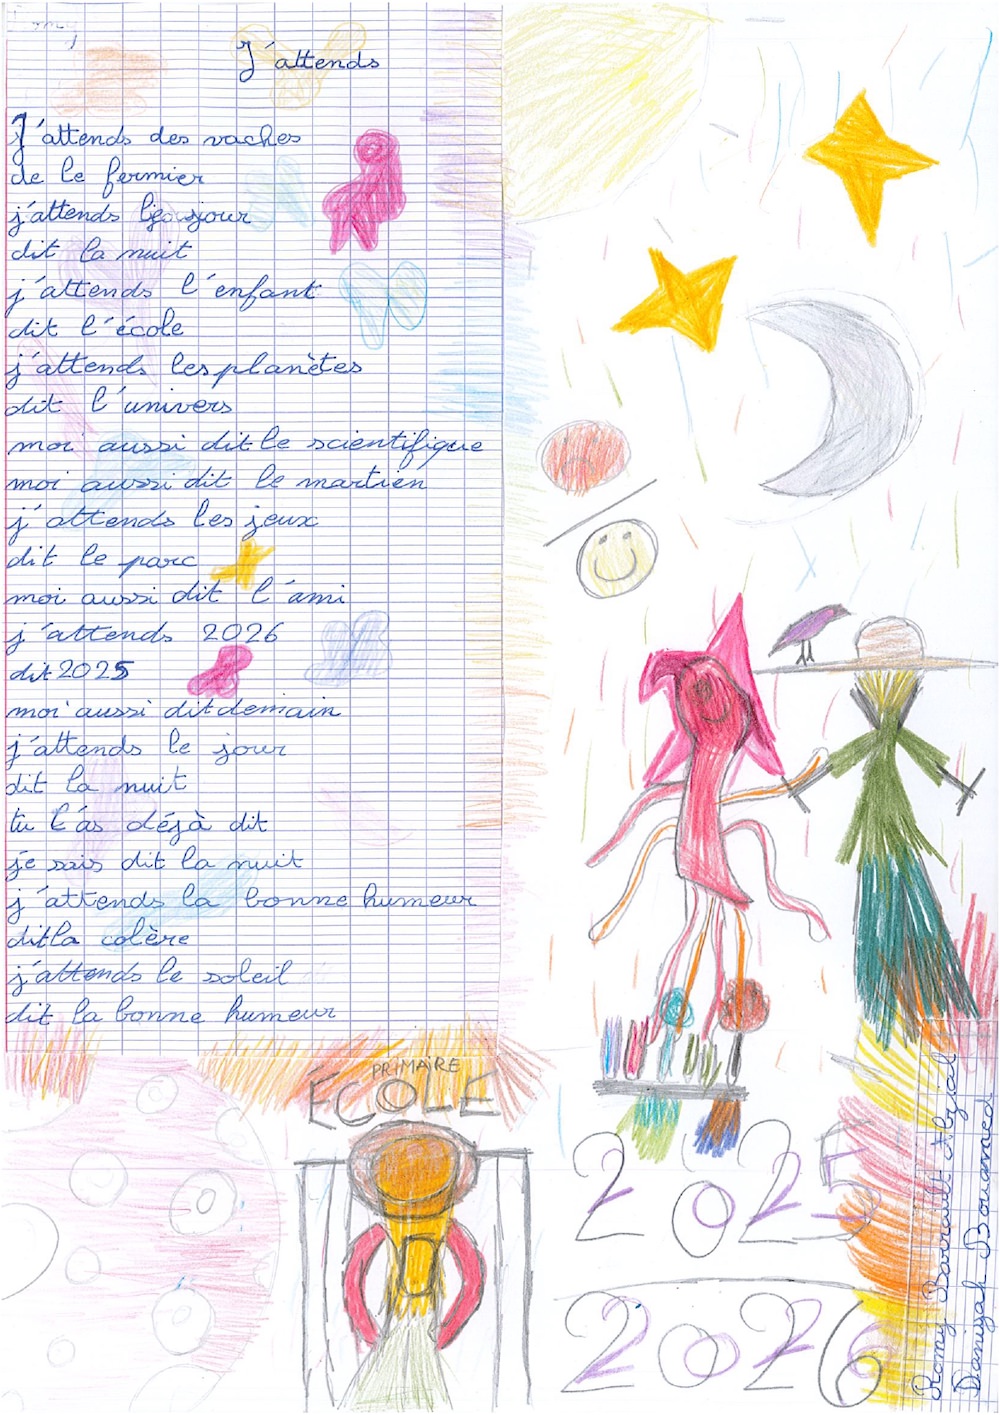 J'attends
J'attends des vaches
de le fermier
j'attends le jour
dit la nuit
j'attends l'enfant
dit l'école
j'attends les planètes
dit l'univers
moi aussi dit le scientifique
moi aussi dit le martien
j'attends les jeux
dit le parc
moi aussi dit l'ami
j'attends 2026
dit 2025
moi aussi dit demain
j'attends le jour
dit la nuit
tu l'as déjà dit
je sais dit la nuit
j'attends la bonne humeur
dit la colère
j'attends le soleil
dit la bonne humeur
PRIMAIRE
ÉCOLE
2025
2026
Romy Barrault
Daniyah